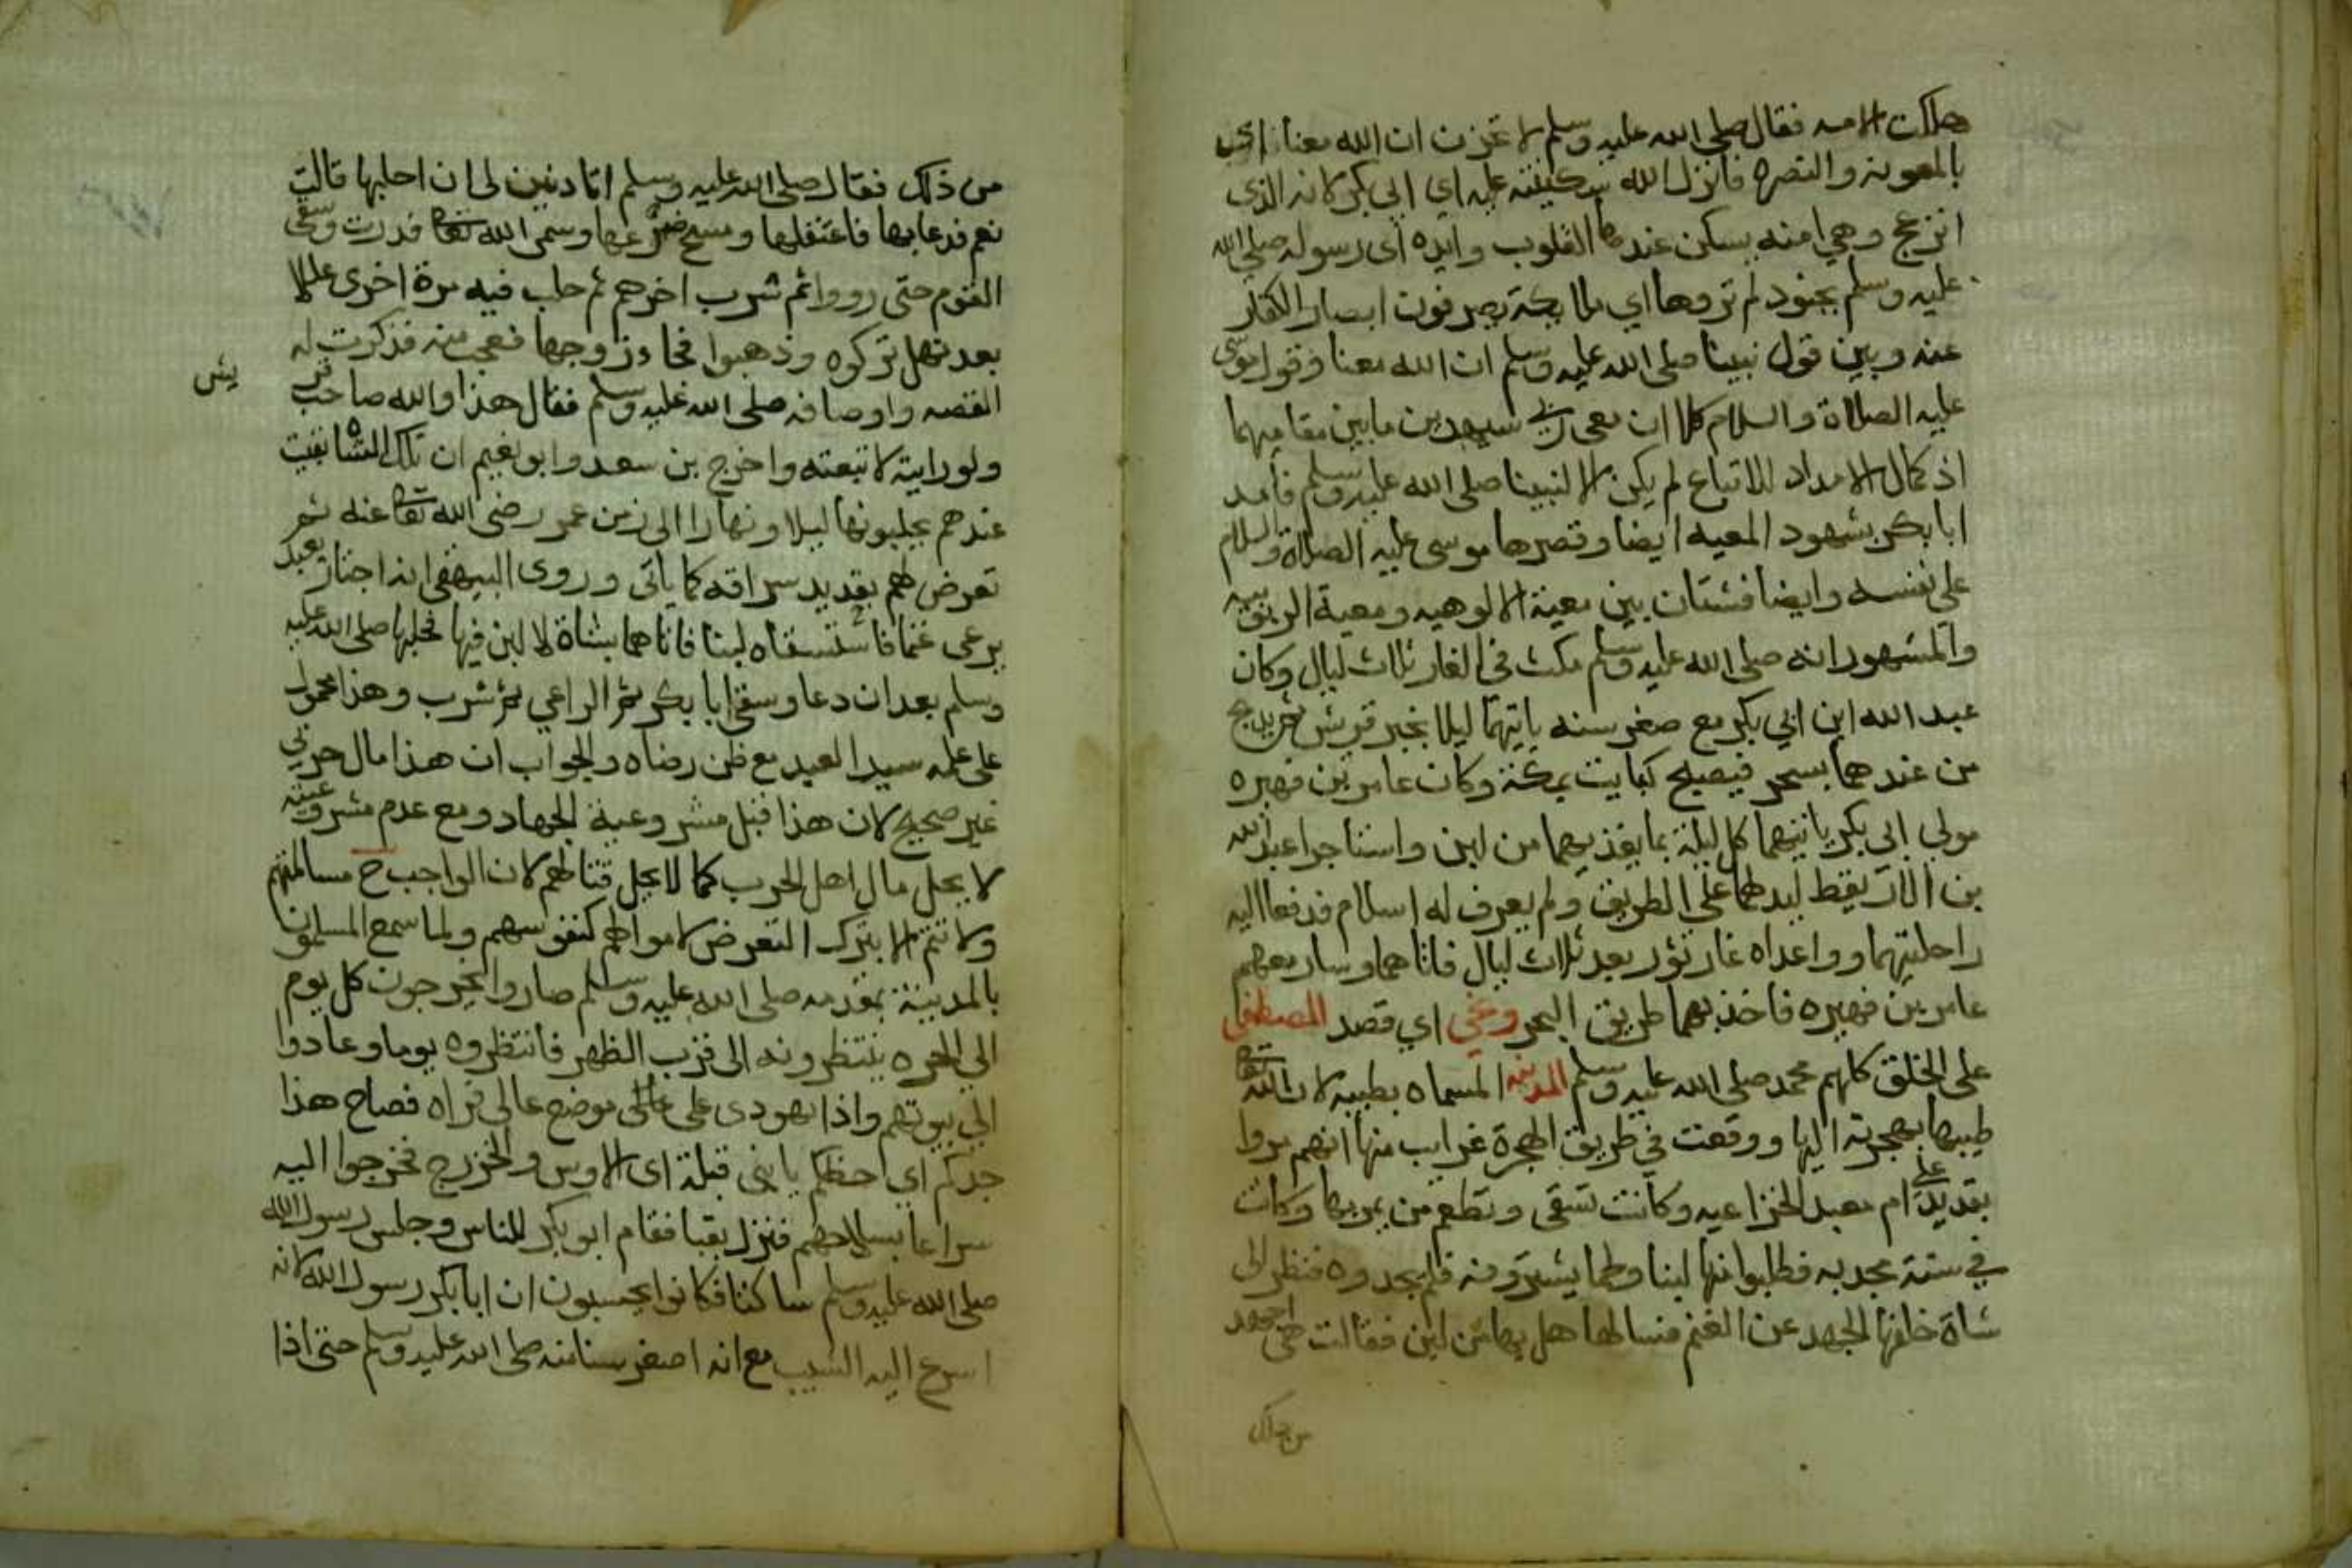 هلكت الامه فقال صلى الله عليه وسلم لا تحزن ان الله معنا اي
بالمعونة والنصره فانزل الله سكينته عليه اي ابي بكر لانه الذي
انزعج وهي امنه يسكن عندها القلوب وايده اي رسوله صلى الله
عليه وسلم بجنود لم تروها اي ملايكة يصرفون ابصار الكفار
عنه وبين قول نبينا صلى الله عليه وسلم ان الله معنا وقول موسى
عليه الصلاة والسلام كلا ان معي ربي سيهدين ما بين مقاميهما
اذ كمال الامداد للاتباع لم يكن الا لنبينا صلى الله عليه وسلم فأمد
ابا بكر بشهود المعيه ايضا وقصرها موسى عليه الصلاة والسلام
على نفسه وايضا فشتان بين معية الالوهيه ومعية الربوبيه
والمشهور انه صلى الله عليه وسلم مكث في الغار ثلاث ليال وكان
عبد الله ابن ابي بكر مع صغر سنه ياتيهما ليلا بخبر قريش ثم يدلج
من عندهما بسحر فيصبح كبايت بمكة وكان عامر بن فهيره
مولى ابي بكر ياتيهما كل ليلة بما يغذيهما من لبن واستاجرا عبد الله
بن الاريقط ليدلهما على الطريق ولم يعرف له اسلام فدفعا اليه
راحلتيهما وواعداه غار ثور بعد ثلاث ليال فاتاهما وسار معهم
عامر بن فهيره فاخذ بهما طريق البحر ونحى اي قصد المصطفى
على الخلق كلهم محمد صلى الله عليه وسلم المدينه المسماه بطيبه لان الله تعالى
طيبها بهجرته اليها ووقعت في طريق الهجرة غرايب منها انهم مروا
بقديد على ام معبد الخزاعيه وكانت تسقى وتطعم من يمر بها وكانت
في سنة مجدبه فطلبوا منها لبنا ولحما يشترونه فلم يجدوه فنظر الى
شاة خلفها الجهد عن الغنم فسالها هل بها من لبن فقالت هي اجهد
من ذلك
من ذلك فقال صلى الله عليه وسلم اتاذنين لي ان احلبها قالت
نعم فدعا بها فاعتقلها ومسح ضرعها وسمى الله تعالى فدرت وسقى
القوم حتى رووا ثم شرب اخرهم ثم حلب فيه مرة اخرى عللا
بعد نهل تركوه وذهبوا فجاء زوجها فعجب منه فذكرت له
القصه واوصافه صلى الله عليه وسلم فقال هذا والله صاحب قر
يش
ولو رايته لاتبعته واخرج بن سعد وابو نعيم ان تلك الشاة بقيت
عندهم يحلبونها ليلا ونهارا الى زمن عمر رضي الله تعالى عنه ثم
تعرض لهم بقديد سراقه كما ياتي وروى البيهقي انه اجتاز بعبد
يرعى غنما فاستسقاه لبنا فاتاهما بشاة لا لبن فيها فحلبها صلى الله عليه
وسلم بعد ان دعا وسقى ابا بكر ثم الراعي ثم شرب وهذا محمول
على علم سيد العبد مع ظن رضاه والجواب ان هذا مال حربي
غير صحيح لان هذا قبل مشروعية الجهاد ومع عدم مشروعيته
لا يحل مال اهل الحرب كما لا يحل قتالهم لان الواجب ح مسالمتهم
ولا تتم الا بترك التعرض لاموالهم كنفوسهم ولما سمع المسلمون
بالمدينة بمقدمه صلى الله عليه وسلم صاروا يخرجون كل يوم
الى الحره ينتظرونه الى قرب الظهر فانتظروه يوما وعادوا
الى بيوتهم واذا يهودي على موضع عالي فراه فصاح هذا
جدكم اي احظكم يا بني قيلة اي الاوس والخزرج فخرجوا اليه
سراعا بسلاحهم فنزل بقبا فقام ابو بكر للناس وجلس رسول الله
صلى الله عليه وسلم ساكتا فكانوا يحسبون ان ابا بكر رسول الله لانه
اسرع اليه الشيب مع انه اصغر سنا منه صلى الله عليه وسلم حتى اذا